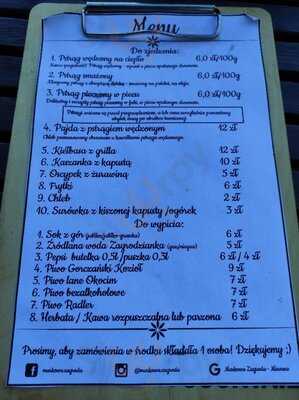 Menu
Do zjedzenia:
1. Pstrąg wędzony na ciepło 6,0 zł/100g
2. Pstrąg smażony 6,0zł/100g
3. Pstrąg pieczony w piecu 6,0zł/100g
4. Pajda z pstrągiem wędzonym 12 zł
5. Kiełbasa z grilla 12 zł
6. Kaszanka z kapustą 10 zł
7. Oscypek z żurawiną 5 zł
8. Frytki 6 zł
9. Chleb 2 zł
10. Surówka z kiszonej kapusty /ogórek 3 zł
Do wypicia:
1. Sok z gór 6 zł
2. Źródlana woda Zagrodzianka 5 zł
3. Pepsi butelka 0,5l/puszka 0,3l 6 zł / 4 zł
4. Piwo Gorczański Kozioł 9 zł
5. Piwo lane Okocim 7 zł
6. Piwo bezalkoholowe 7 zł
7. Piwo Radler 7 zł
8. Herbata / Kawa rozpuszczalna lub parzona 6 zł
Prosimy, aby zamówienia w środku składała 1 osoba! Dziękujemy :)